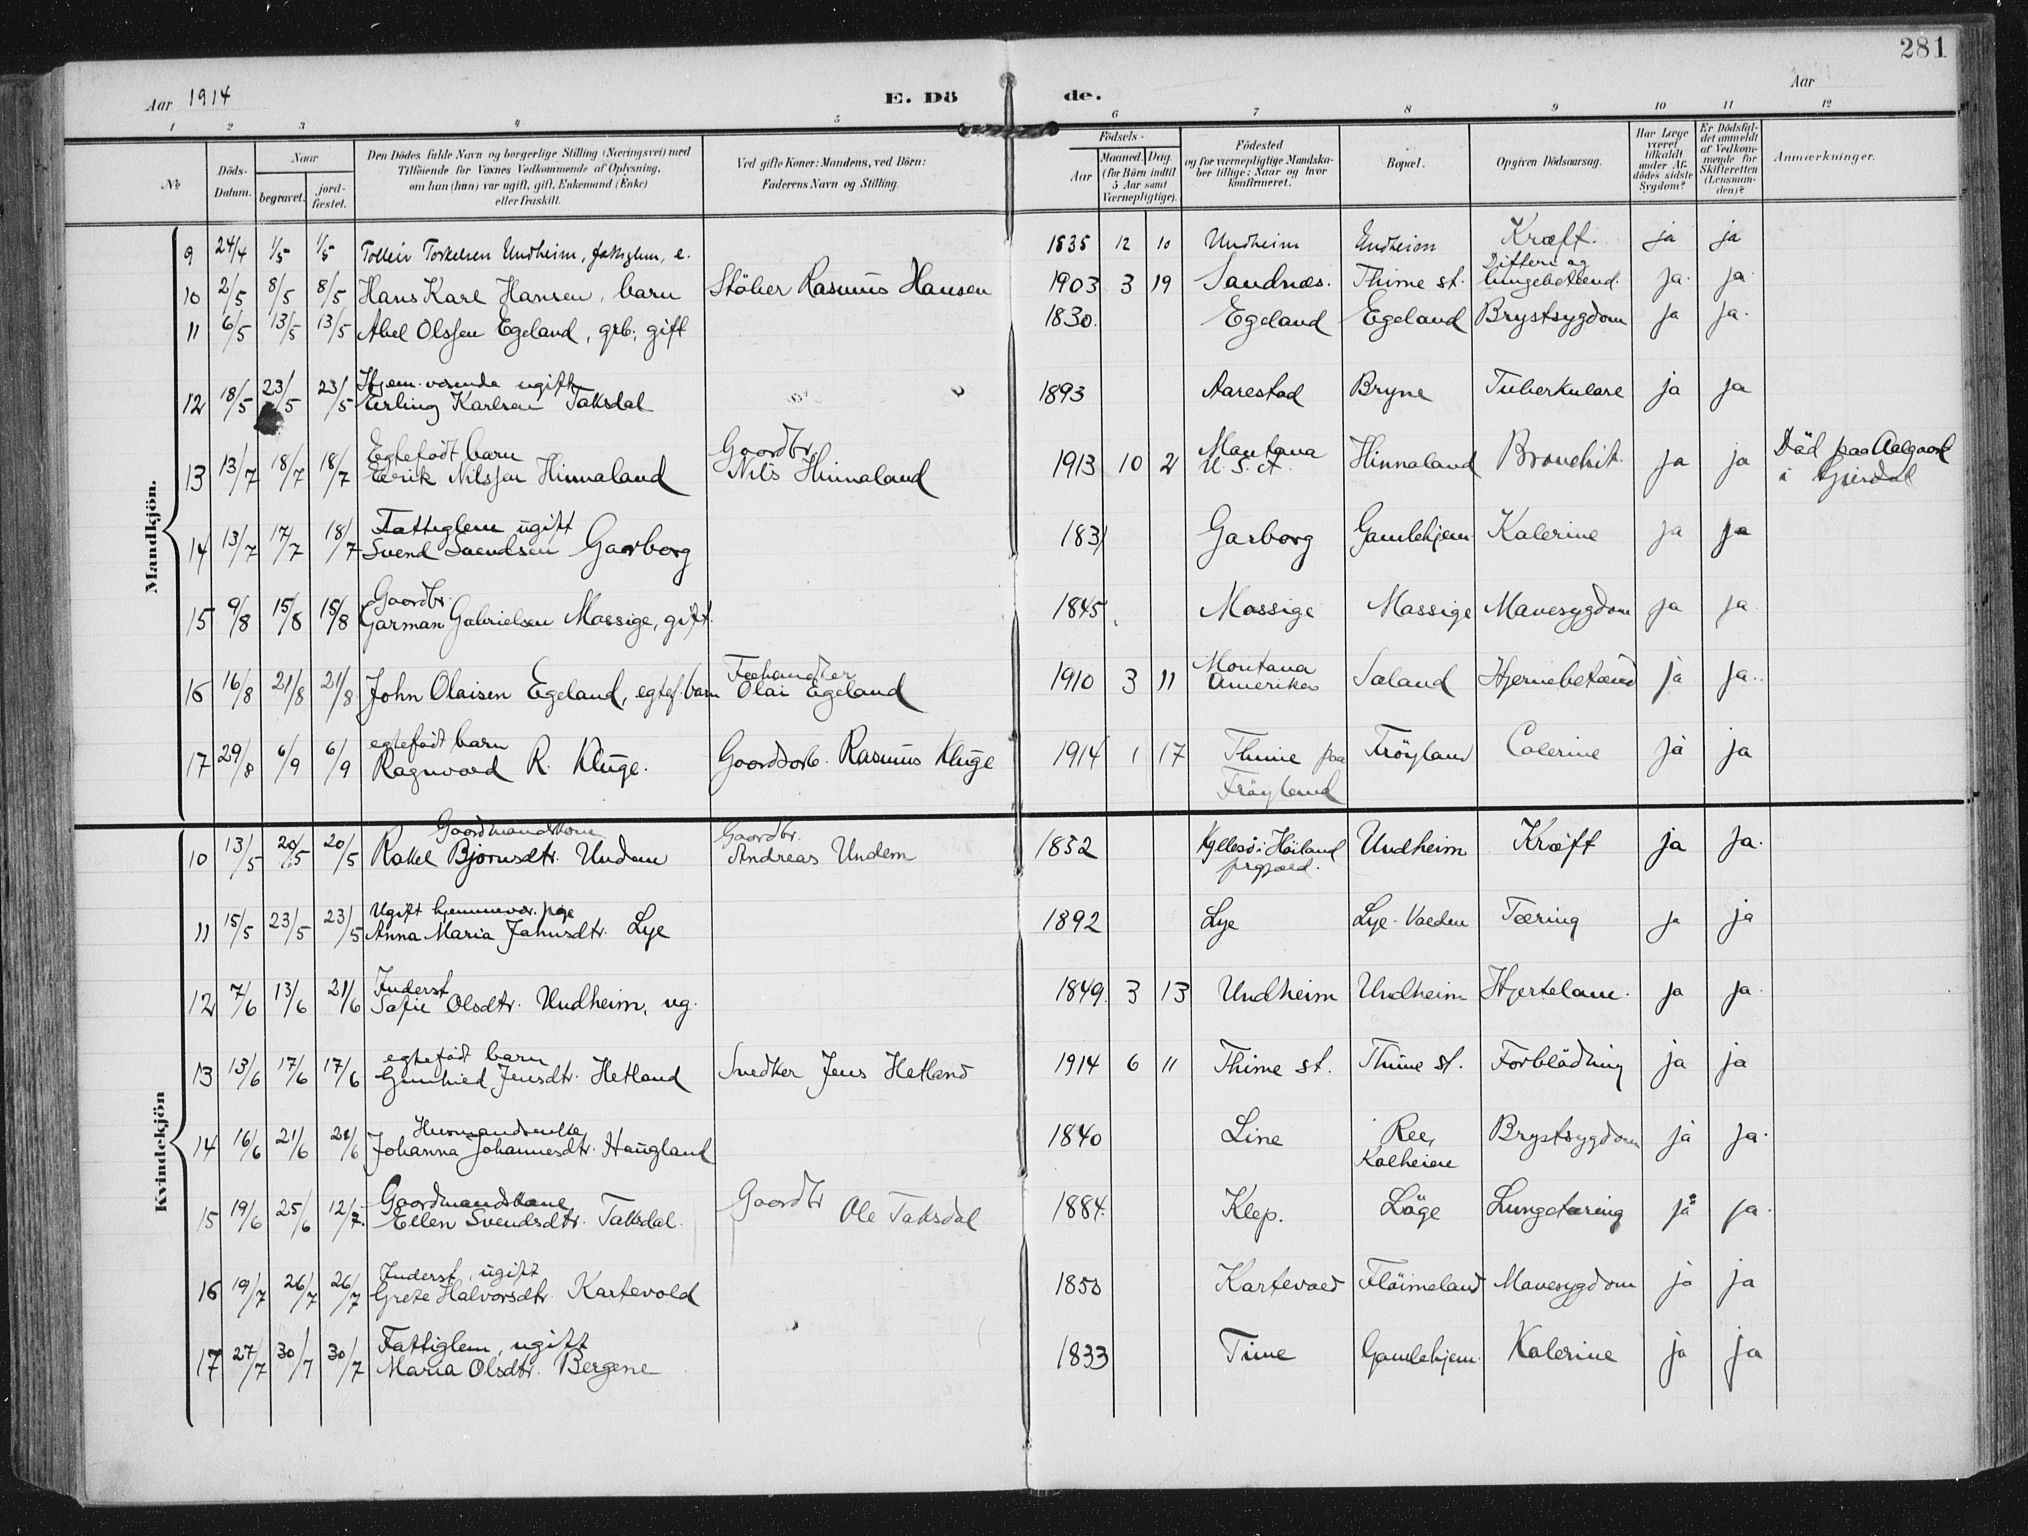 281
Aar 1914
E. Dö de.
Aar
1 2 3 4 5 6 7 8 9 10 11 12
No
Döds-Datum.
Naar
begravet.
jord-fæstet.
Den Dödes fulde Navn og borgerlige Stilling (Næringsvei) med
Tilföiende for Voxnes Vedkommende af Oplysning,
om han (hun) var ugift, gift, Enkemand (Enke)
eller fraskilt.
Ved gifte Koner: Mandens, ved Börn:
Faderens Navn og Stilling.
Födsels-
Aar
Maaned. Dag.
(for Börn indtil
5 Aar samt
Værnepligtige).
Födested
og for værnepligtige Mandska-
ber tillige: Naar og hvor
konfirmeret.
Bopæl.
Opgiven Dödsaarsag.
Har Læge
været
tilkaldt
under Af-
dödes sidste
Sygdom?
Er Dödsfal-
det anmeldt
af Vedkom-
mende for
Skifteretten
(Lensman-
den)?
Anmærkninger.
Mandkjön.
9 24/4 1/5 1/5 Tolleiv Torkelsen Undheim, fattiglem, e. 1835 12 10 Undheim Undheim Kræft. ja ja
10 2/5 8/5 8/5 Hans Karl Hansen, barn Stöber Rasmus Hansen 1903 3 19 Sandnæs. Thime st. Difteri og
lungebetænd. ja. ja.
11 6/5 13/5 13/5 Abel Olssen Egeland, grb. gift 1830. Egeland Egeland Brystsygdom ja ja.
12 18/5 23/5 23/5 Hjem.værende ugift
Erling Karlsen Taksdal 1893 Aarestad Bryne Tuberkulose ja ja
13 13/7 18/7 18/7 Egtefødt barn
Eerik Nilssen Hinnaland Gaardbr.
Nils Hinnaland 1913 10 2 Montana
U. S. A. Hinnaland Bronchit. ja ja Död paa Aalgaard
i Gjesdal
14 13/7 17/7 18/7 Fattiglem ugift
Svend Svendsen Garborg 1831 Garborg Gamlehjem Katerine ja ja
15 9/8 15/8 15/8 Gaardbr.
Garman Gabrielsen Mossige, gift. 1845 Mossige Mossige Mavesygdom ja ja.
16 16/8 21/8 21/8 John Olaisen Egeland, egtef. barn Feehandler
Olai Egeland 1910 3 11 Montana
Amerika Saland Hjernebetænd ja ja.
17 29/8 6/9 6/9 egtefödt barn
Ragnvald R. Kluge. Gaardbr. Rasmus Kluge 1914 1 17 Thime paa
Fröyland Fröyland Colerine ja ja
Kvindekjön
10 13/5 20/5 20/5 Gaardmandskone
Rakel Bjornsdtr. Undem Gaardbr.
Andreas Undem 1852 Kyllesö i Höiland
prgjæld. Undheim Kræft ja ja.
11 15/5 23/5 23/5 Ugift hjemmevær. pige
Anna Maria Jahnsdtr. Lye 1892 Lye Lye-Valden Tæring ja ja
12 7/6 13/6 21/6 Inderst
Safie Olsdtr. Undheim, ug. 1849. 3 13 Undheim Undheim Hjertelam. ja ja.
13 13/6 17/6 17/6 egtefödt barn
Gunhild Jensdtr. Hetland Snedker Jens Hetland 1914 6 11 Thime st. Thime st. Forblödning ja ja
14 16/6 21/6 21/6 Husmandsenke
Johanna Johannesdtr. Haugland 1840 Line Ree,
Kalheien Brystsygdom ja ja.
15 19/6 25/6 12/7 Gaardmandskone
Ellen Svendsdtr. Taksdal. Gaardbr Ole Taksdal 1884. Klep. Löge Lungetæring ja ja.
16 19/7 26/7 26/7 Inderst, ugift
Grete Halvorsdtr. Kartevold 1850 Kartevold Flöimeland Mavesygdom ja ja
17 27/7 30/7 30/7 Fattiglem, ugift
Maria Olsdtr. Bergene 1833 Time Gamlehjem. Kolerine ja ja